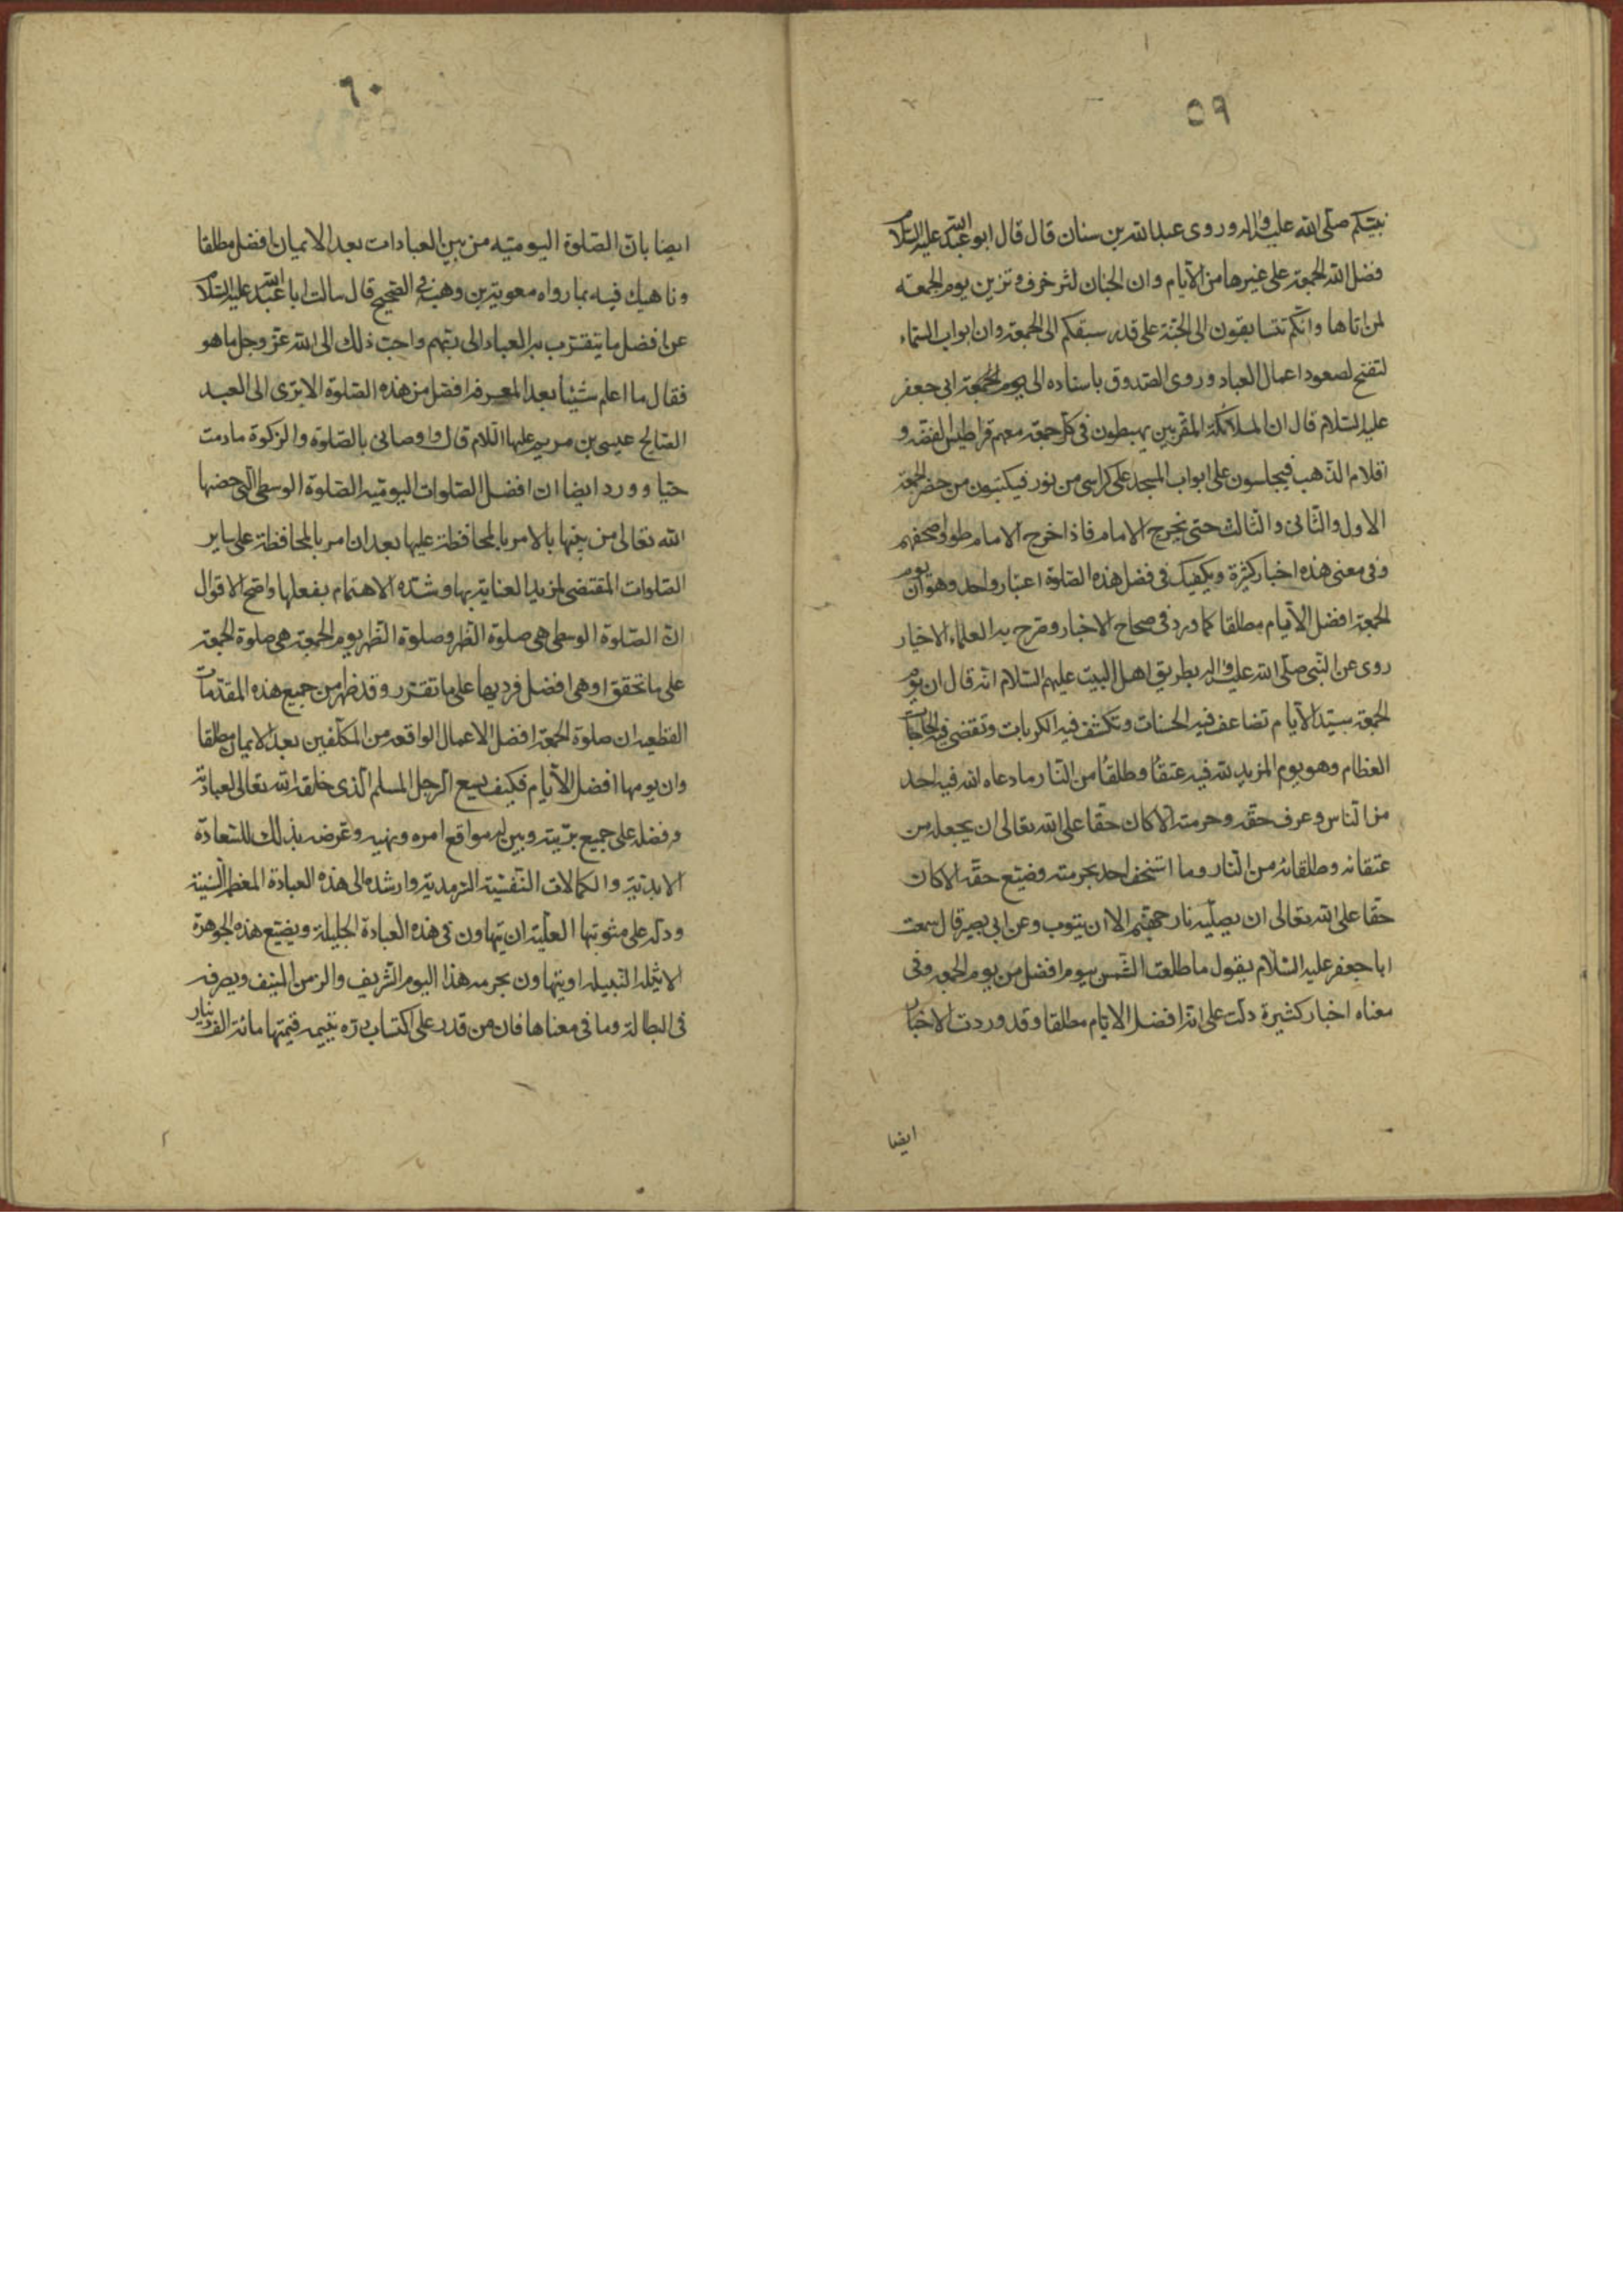 ٥٩
نبيّكم صلّى الله عليه واله وروى عبدالله بن سنان قال قال ابو عبدالله عليه السلام
فضل الله الجمعة على غيرها من الأيام وان الجنان لتزخرف وتزين يوم الجمعه
لمن اتاها وانّكم تتسابقون الى الجنّة على قدر سبقكم الى الجمعة وان ابواب السّماء
لتفتح لصعود اعمال العباد وروى الصّدوق باسناده الى ابى جعفر
عليه السّلام قال ان الملائكة المقربين يهبطون فى كل جمعة معهم قراطيس الفضّه و
اقلام الذّهب فيجلسون على ابواب المسجد على كراسى من نور فيكتبون من حضر الجمعة
الاول والثّانى والثّالث حتى يخرج الامام فاذا خرج الامام طووا صحفهم
وفى معنى هذه اخبار كثيرة ويكفيك فى فضل هذه الصّلوة اعتبار واحد وهو ان يوم
الجمعة افضل الأيام مطلقا كما ورد فى صحاح الاخبار وصرّح به العلماء الاخيار
روى عن النّبى صلّى الله عليه واله بطريق اهل البيت عليهم السّلام انّه قال ان يوم
الجمعة سيّد الأيام تضاعف فيه الحسنات وتكشف فيه الكربات وتقضى فيه الحاجات
العظام وهو يوم المزيد لله فيه عتقاء وطلقاء من النّار ما دعاه الله فيه احد
من النّاس وعرف حقّه وحرمته الا كان حقا على الله تعالى ان يجعله من
عتقائه وطلقائه من النّار وما استخف احد بحرمته وضيّع حقّه الا كان
حقّا على الله تعالى ان يصليه نار جهنّم الا ان يتوب وعن ابى بصير قال سمعت
ابا جعفر عليه السّلام يقول ما طلعت الشّمس بيوم افضل من يوم الجمعه وفى
معناه اخبار كثيرة دلّت على انّه افضل الايّام مطلقا وقد وردت الاخبار
ايضا
٦٠
ايضا بان الصّلوة اليوميّه من بين العبادات بعد الايمان افضل مطلقا
وناهيك فيه بما رواه معوية بن وهب فى الصّحيح قال سالت ابا عبدالله عليه السّلام
عن افضل ما يتقرّب به العباد الى ربّهم واحبّ ذلك الى الله عزّ وجل ما هو
فقال ما اعلم شيئا بعد المعرفة افضل من هذه الصّلوة الا ترى الى العبد
الصّالح عيسى بن مريم عليها السّلام قال واوصانى بالصّلوة والزكوة ما دمت
حيّا وورد ايضا ان افضل الصّلوات اليوميّه الصّلوة الوسطى الّتى خصّها
الله تعالى من بينها بالامر بالمحافظة عليها بعد ان امر بالمحافظة على ساير
الصّلوات المقتضى لمزيد العناية بها وشدّه الاهتمام بفعلها واصح الاقوال
انّ الصّلوة الوسطى هى صلوة الظّهر وصلوة الظّهر يوم الجمعة هى صلوة الجمعة
على ما تحقق او هى افضل فرديها على ما تقرر وقد ظهر من جميع هذه المقدّمات
القطعيه ان صلوة الجمعة افضل الاعمال الواقعه من المكلّفين بعد الايمان مطلقا
وان يومها افضل الأيام فكيف يسع الرجل المسلم الّذى خلقه الله تعالى لعبادته
وفضله على جميع بريّته وبيّن له مواقع امره ونهيه وعرضه بذلك للسّعادة
الابديّة والكمالات النّفسيّة السرمديّة وارشده الى هذه العبادة المعظمة السّنيّة
ودلّه على مثوبتها العليّة ان يتهاون فى هذه العبادة الجليلة ويضيّع هذه الجوهرة
الاثيله النّبيله او يتهاون بحرمه هذا اليوم الشّريف والزمن المنيف ويصرفه
فى البطالة وما فى معناها فان من قدر على اكتساب درّه يتيمه قيمتها مائة الف دينار